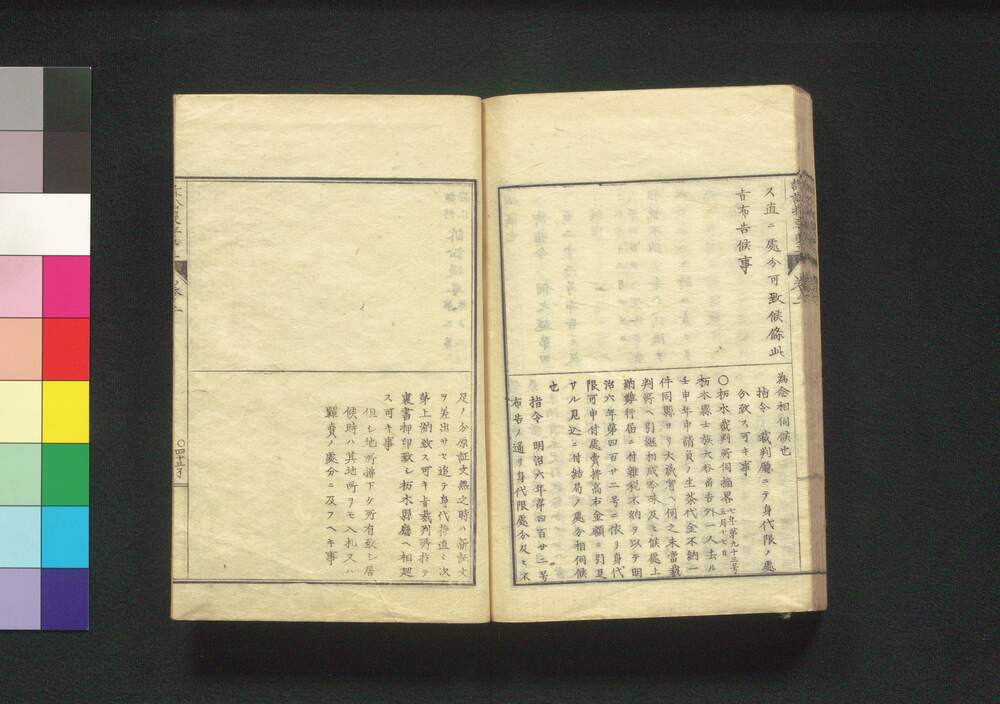 ス直ニ處分可致候條此
旨布告候事
為念相伺候也
指令 裁判廳ニテ身代限ノ處
分致ス可キ事
○栃木裁判所伺摘畧 七年第九十三号 五月十七日
栃木縣士族大谷畄吉外一人去ル
壬申年中請負ノ生茶代金不納一
件同縣ヨリ大蔵省ヘ伺之末當裁
判所ヘ引継相成吟味及ヒ候處上
納難行届ニ付雜税不納ヲ以テ明
治六年第四百廿二号ニ依リ身代
限可申付處賣拂高右金額ニ引足
サル見込ニ付結局ノ處分相伺候
也
指令 明治六年第四百廿二号
布告ノ通リ身代限處分及ヒ不
足ノ分原証文無之時ハ新証文
ヲ差出サセ追テ身代持直シ次
第上納致ス可キ旨裁判所於テ
裏書押印致シ栃木縣廳ヘ相廻
ス可キ事
但シ地所擔下ケ所有致シ居
候時ハ其地所ヲモ入札又ハ
糶賣ノ處分ニ及フヘキ事
○四十五丁